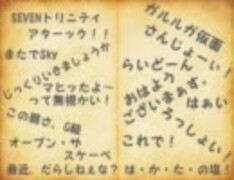 SEVENトリニティ
アターック！！
またでSky
じっくりいきましょうか
マヒッたよ〜
って無機かい！
この闘さ、G級
オープン・ザ
スケーベ
最近、だらしねぇな？
ガルルガ仮面
さんじょーい！
らいどーん
おはよう
ございまぁす・
はぁい
ろっしょい！
これで！
は・か・た・の塩！